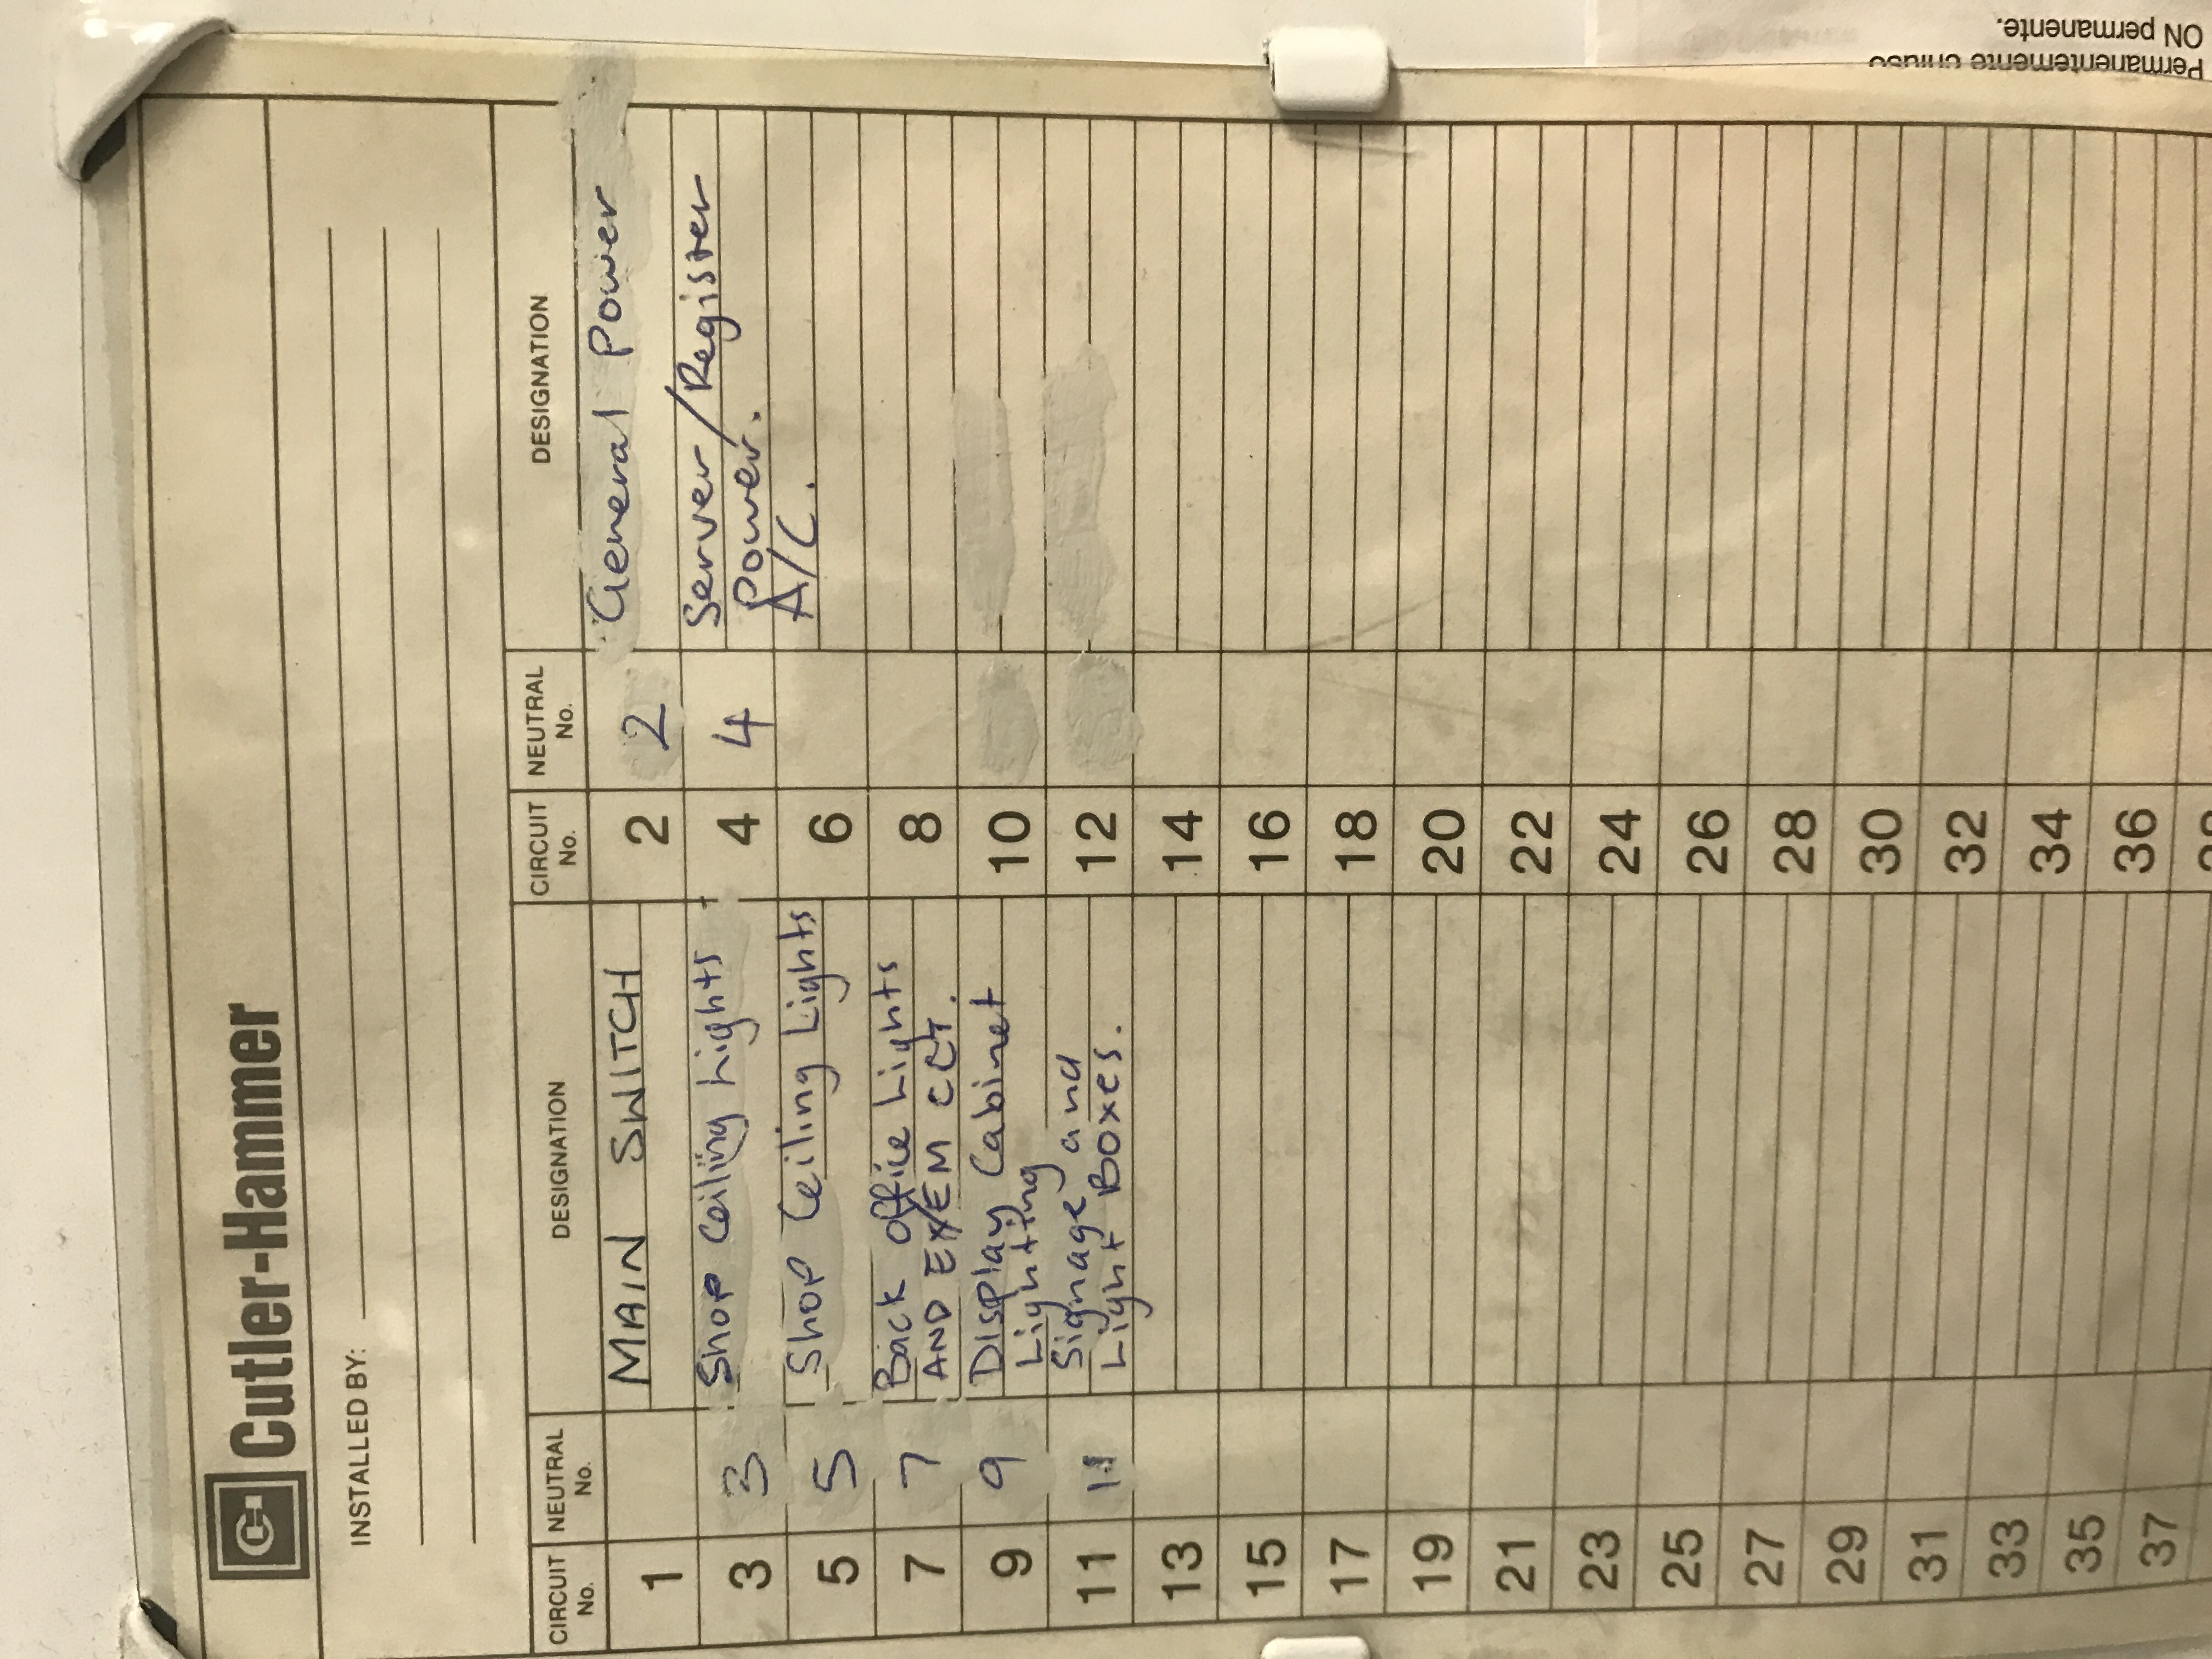 Permanentemente chiuso
ON permanente.
Cutler-Hammer
INSTALLED BY:
CIRCUIT No. NEUTRAL No. DESIGNATION CIRCUIT No. NEUTRAL No. DESIGNATION
1 MAIN SWITCH 2 2 General Power
3 3 Shop Ceiling Lights 4 4 Server/Register
Power.
5 5 Shop Ceiling Lights 6 A/C.
7 7 Back Office Lights 8
AND EX/EM CCT.
9 9 Display Cabinet 10
Lighting
11 11 Signage and 12
Light Boxes.
13 14
15 16
17 18
19 20
21 22
23 24
25 26
27 28
29 30
31 32
33 34
35 36
37